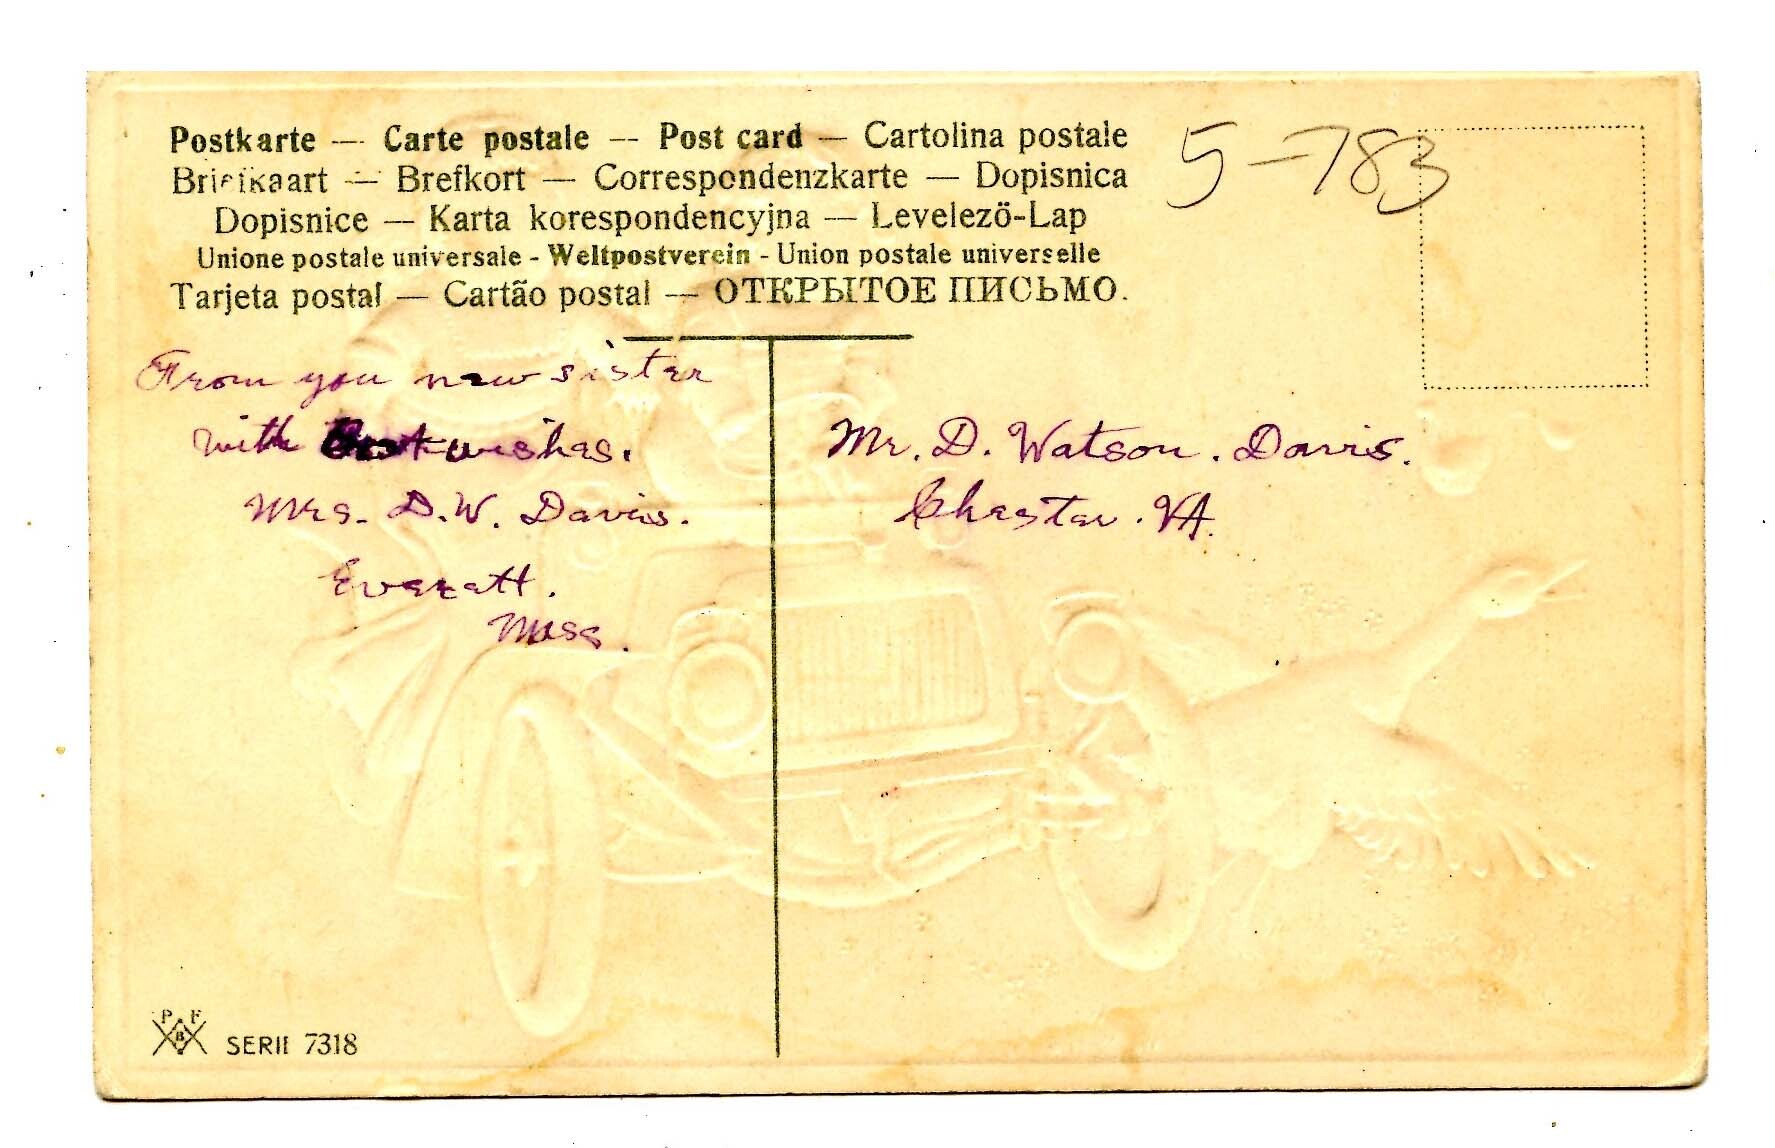 Postkarte — Carte postale — Post card — Cartolina postale
Briefkaart — Brefkort — Correspondenzkarte — Dopisnica
Dopisnice — Karta korespondencyjna — Levelezö-Lap
Unione postale universale - Weltpostverein - Union postale universelle
Tarjeta postal — Cartão postal — ОТКРЫТОЕ ПИСЬМО.
5-783
From you new sister
with Best wishes.
Mrs. D. W. Davis.
Everett.
Mass.
Mr. D. Watson. Davis.
Chester. VA.
P F
B
SERIE 7318